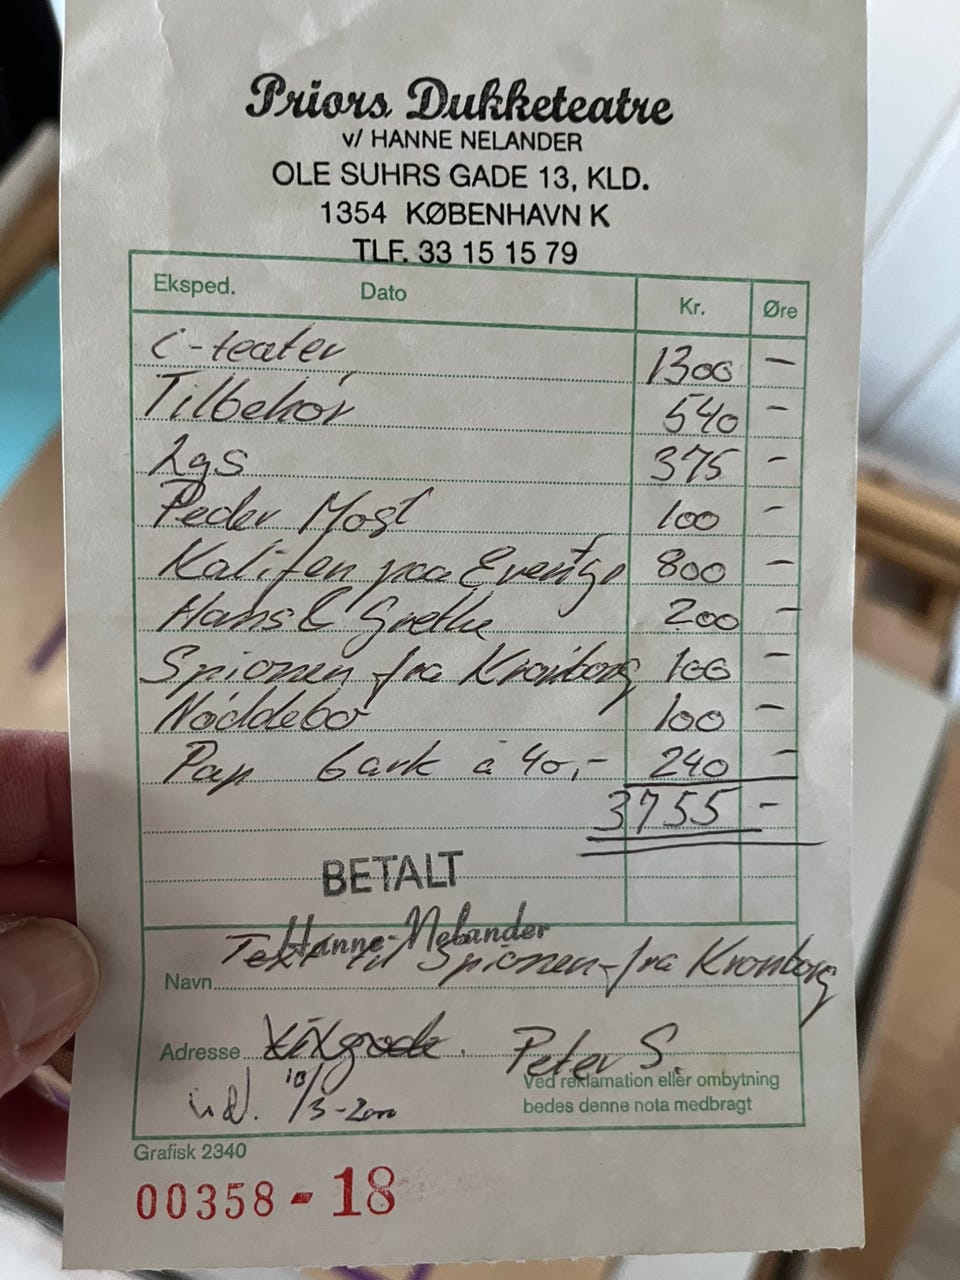 Priors Dukketeatre
v/ HANNE NELANDER
OLE SUHRS GADE 13, KLD.
1354 KØBENHAVN K
TLF. 33 15 15 79
Eksped. Dato Kr. Øre
C-teater 1300 -
Tilbehør 540 -
Lys 375 -
Peder Most 100 -
Kalifen paa Eventyr 800 -
Hans & Grethe 200 -
Spionen fra Kronborg 100 -
Nøddebo 100 -
Pap 6 ark à 40,- 240 -
3755 -
BETALT
Hanne Nelander
Navn Tekst til Spionen fra Kronborg
Adresse Peter S.
Ved reklamation eller ombytning
bedes denne nota medbragt
Grafisk 2340
00358 - 18